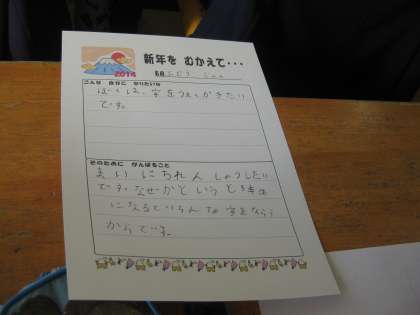 新年を むかえて・・・
2014
名前
こんな 自分に なりたいな
ぼくは、字をうまくかきたい
です。
そのために がんばること
まいにちれんしゅうしたい
です。なぜかというと
になるといろんな字をならう
からです。